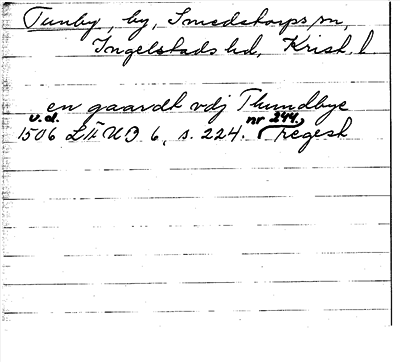 Tunby, by, Smedstorps sn,
Ingelstads hd, Krist. l
en gaardt vdj Thundbye
u.d. nr 244.
1506 LÄUB 6, s. 224. regest